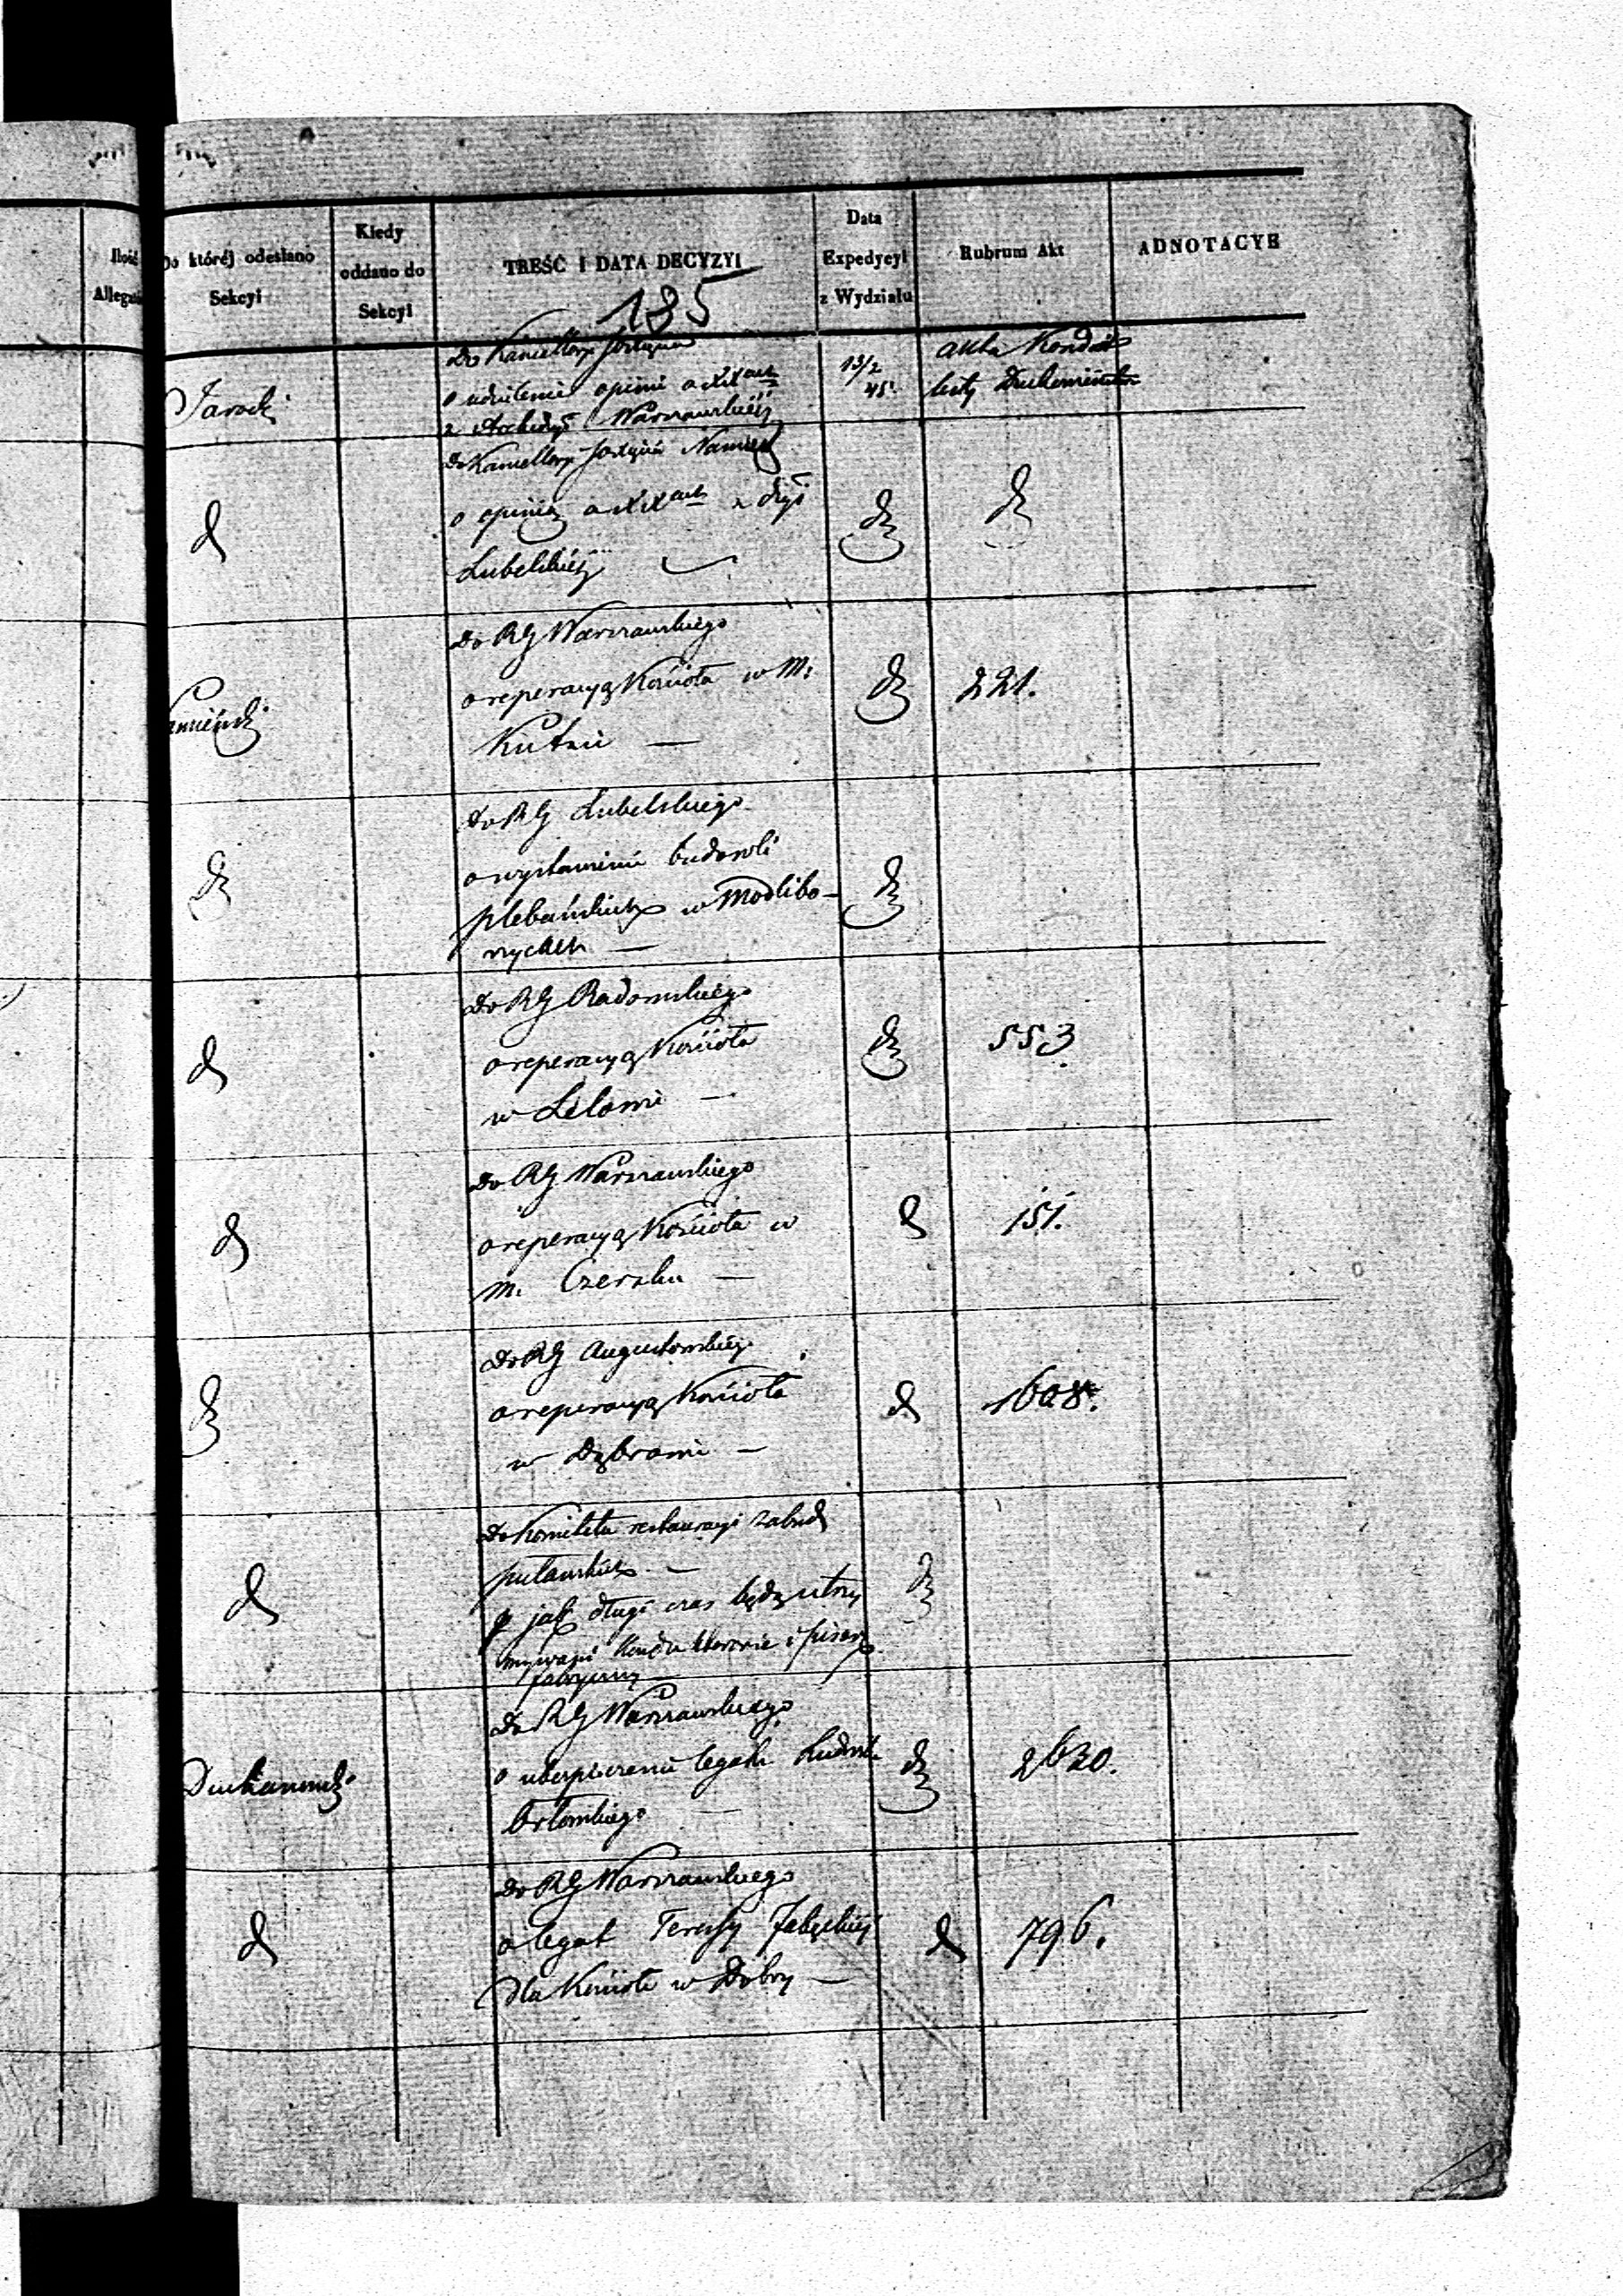 Ilość
Allega
Do któréj odesłano
Sekcyi
Kiedy
oddano do
Sekcyi
TREŚĆ I DATA DECYZYI
185
Data
Expedycyi
z Wydziału
Rubrum Akt
ADNOTACYE
Jarocki
Do Kancellaryi
o udzielenie opinii o XX
z Archidyi Warszawskiéj
13/2
45
akta
listy
d
Do Kancellaryi Namies
o opinią o XX z dyi
Lubelskiéj
d
d
Do RG Warszawskiego
o reperacyą Kościoła w M.
Kutnie —
d
221.
d
Do RG Lubelskiego
o wystawienie budowli
plebańskich w Modlibo-
rzycach —
d
d
Do RG Radomskiego
o reperacyą Kościoła
w Lelowie —
d
553
d
Do RG Warszawskiego
o reperacyą Kościoła w
M. Czersku —
d
151.
d
Do RG Augustowskiego
o reperacyą Kościoła
w Dąbrowie —
d
1608.
d
Do Komitetu restauracyi zabud
puławskich —
jak długi czas będą utrzy
mywani i pisarz
fabryczny
d
Do RG Warszawskiego
o ubezpieczenie legatu
d
2630.
d
Do RG Warszawskiego
o legat Teressy
dla Kościoła w Dobry —
d
796.